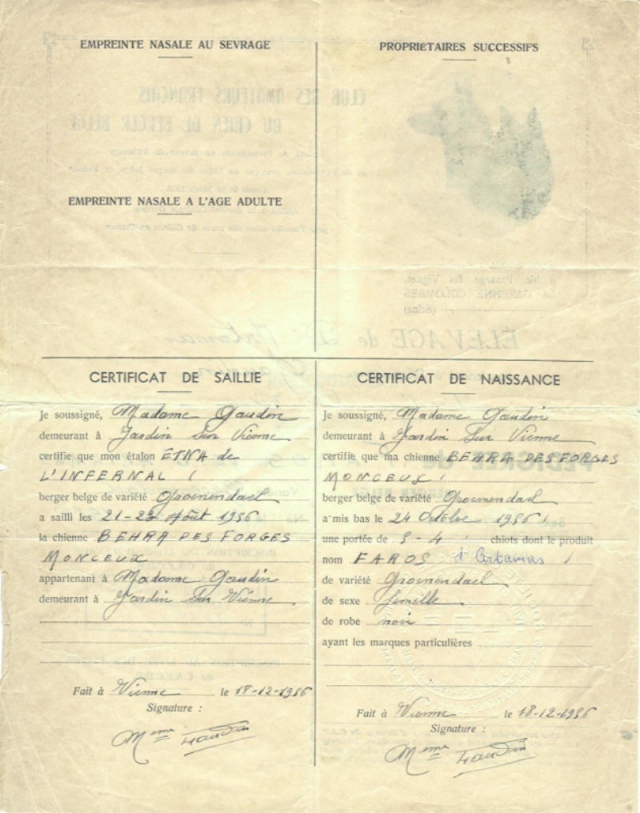 EMPREINTE NASALE AU SEVRAGE
EMPREINTE NASALE A L'AGE ADULTE
PROPRIETAIRES SUCCESSIFS
CERTIFICAT DE SAILLIE
Je soussigné, Madame Gaudin
demeurant à Jardin Sur Vienne
certifie que mon étalon ETNA de
L'INFERNAL !
berger belge de variété Groenendael
a sailli les 21-23 Août 1956
la chienne BEHRA DES FORGES
MONCEUX
appartenant à Madame Gaudin
demeurant à Jardin Sur Vienne
Fait à Vienne le 18-12-1956
Signature :
Mme Gaudin
CERTIFICAT DE NAISSANCE
Je soussigné, Madame Gaudin
demeurant à Jardin Sur Vienne
certifie que ma chienne BEHRA DES FORGES
MONCEUX !
berger belge de variété Groenendael
a mis bas le 24 Octobre 1956 !
une portée de chiots dont le produit
nom FAROS d'Artamas !
de variété Groenendael
de sexe femelle
de robe noir
ayant les marques particulières
Fait à Vienne le 18-12-1956
Signature :
Mme Gaudin